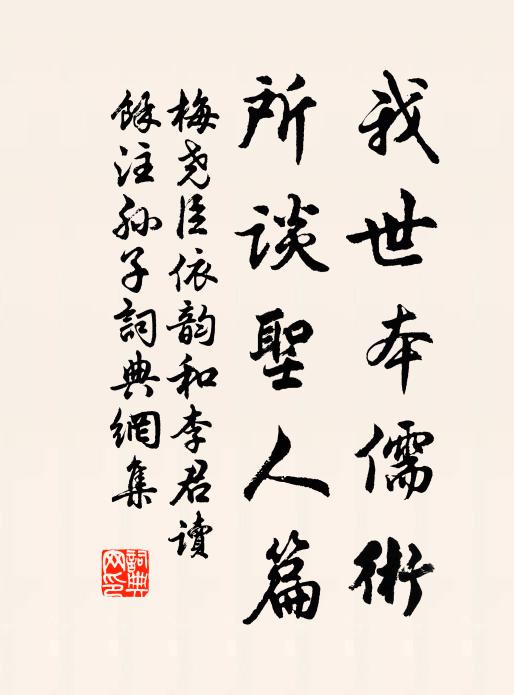 我世本儒術
所談聖人篇
梅尧臣依韵和李君讀
餘注孙子詞典網集
詞典网印